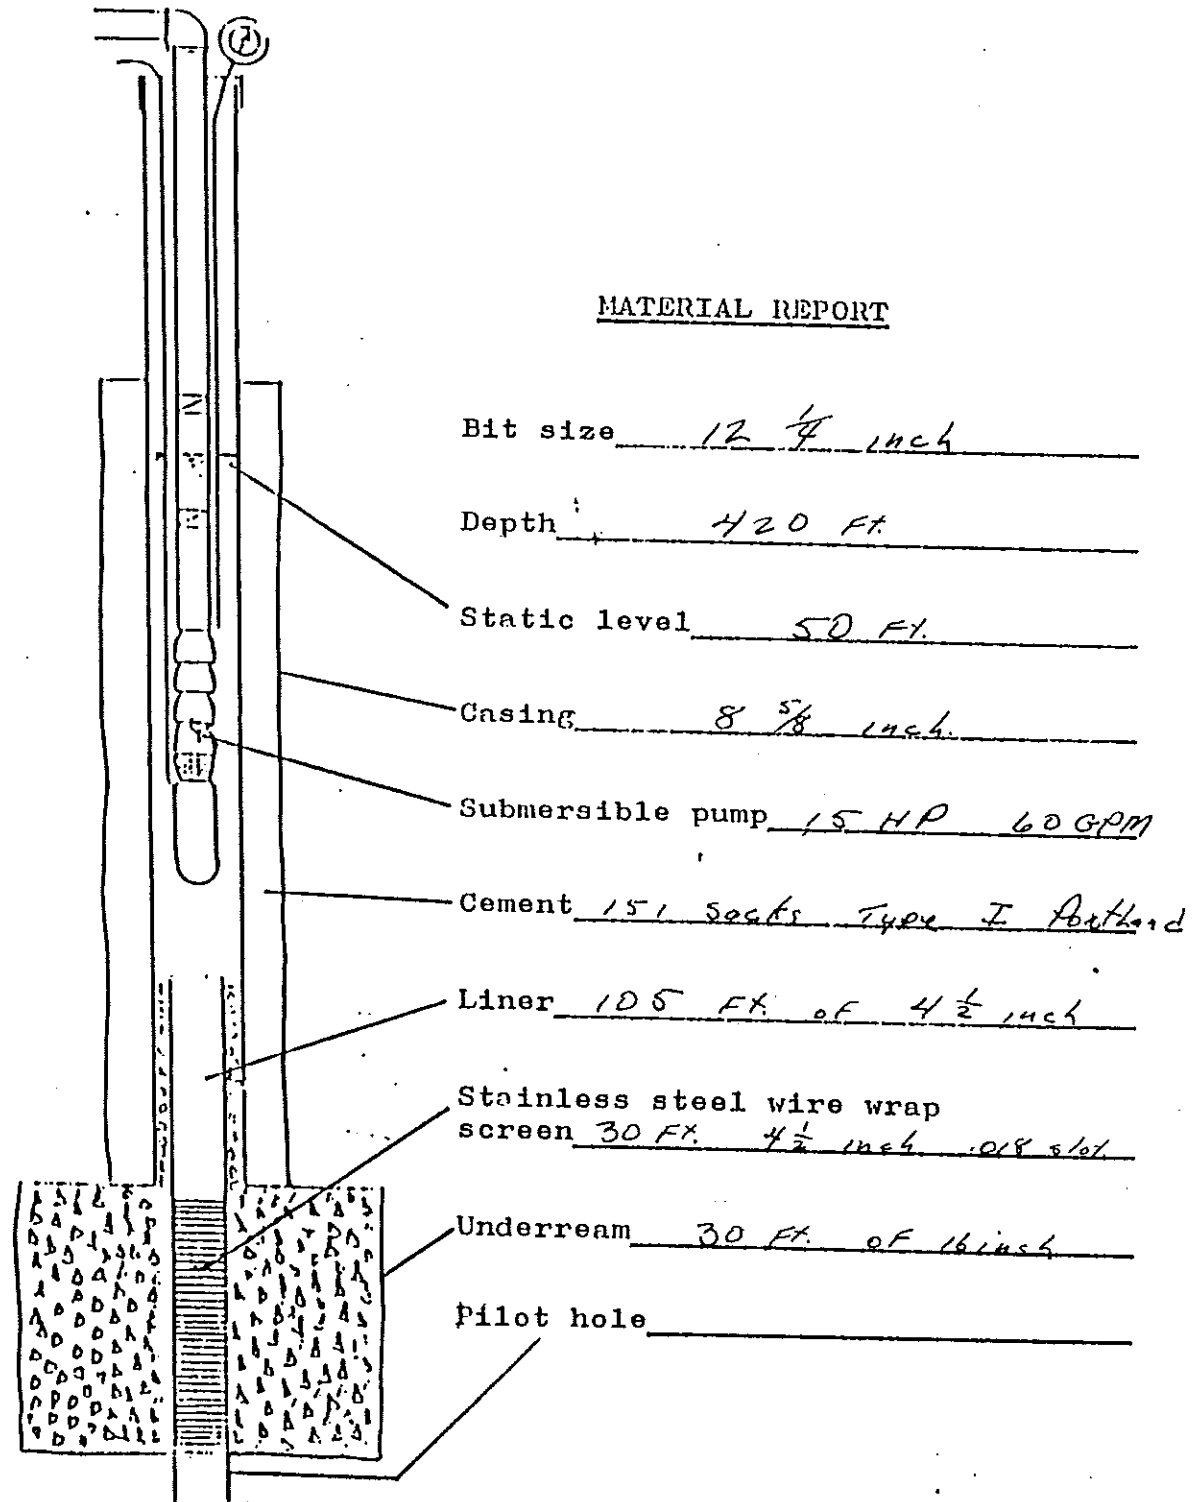 MATERIAL REPORT
Bit size 12 1/4 inch
Depth 420 FT.
Static level 50 FT.
Casing 8 5/8 inch.
Submersible pump 15 HP 60 GPM
Cement 151 Sacks Type I Portland
Liner 105 FT. of 4 1/2 inch
Stainless steel wire wrap
screen 30 FT. 4 1/2 inch .018 slot
Underream 30 FT. OF 16 inch
Pilot hole